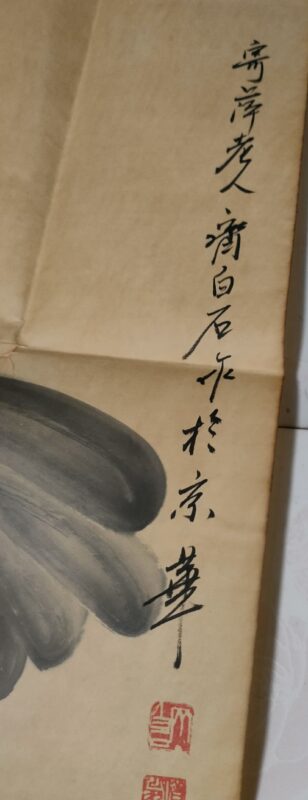 寄萍老人齊白石作於京華